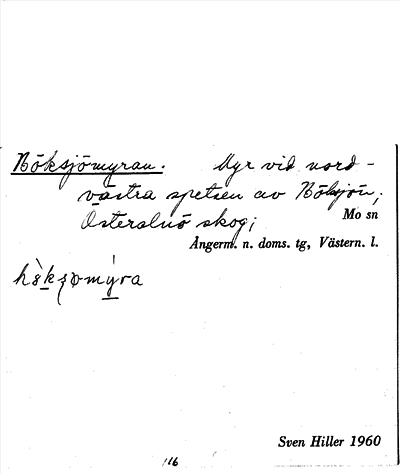 Böksjömyran. Myr vid nord-
västra spetsen av Böksjön;
Österalnö skog; Mo sn
Ångerm. n. doms. tg, Västern. l.
Sven Hiller 1960
116